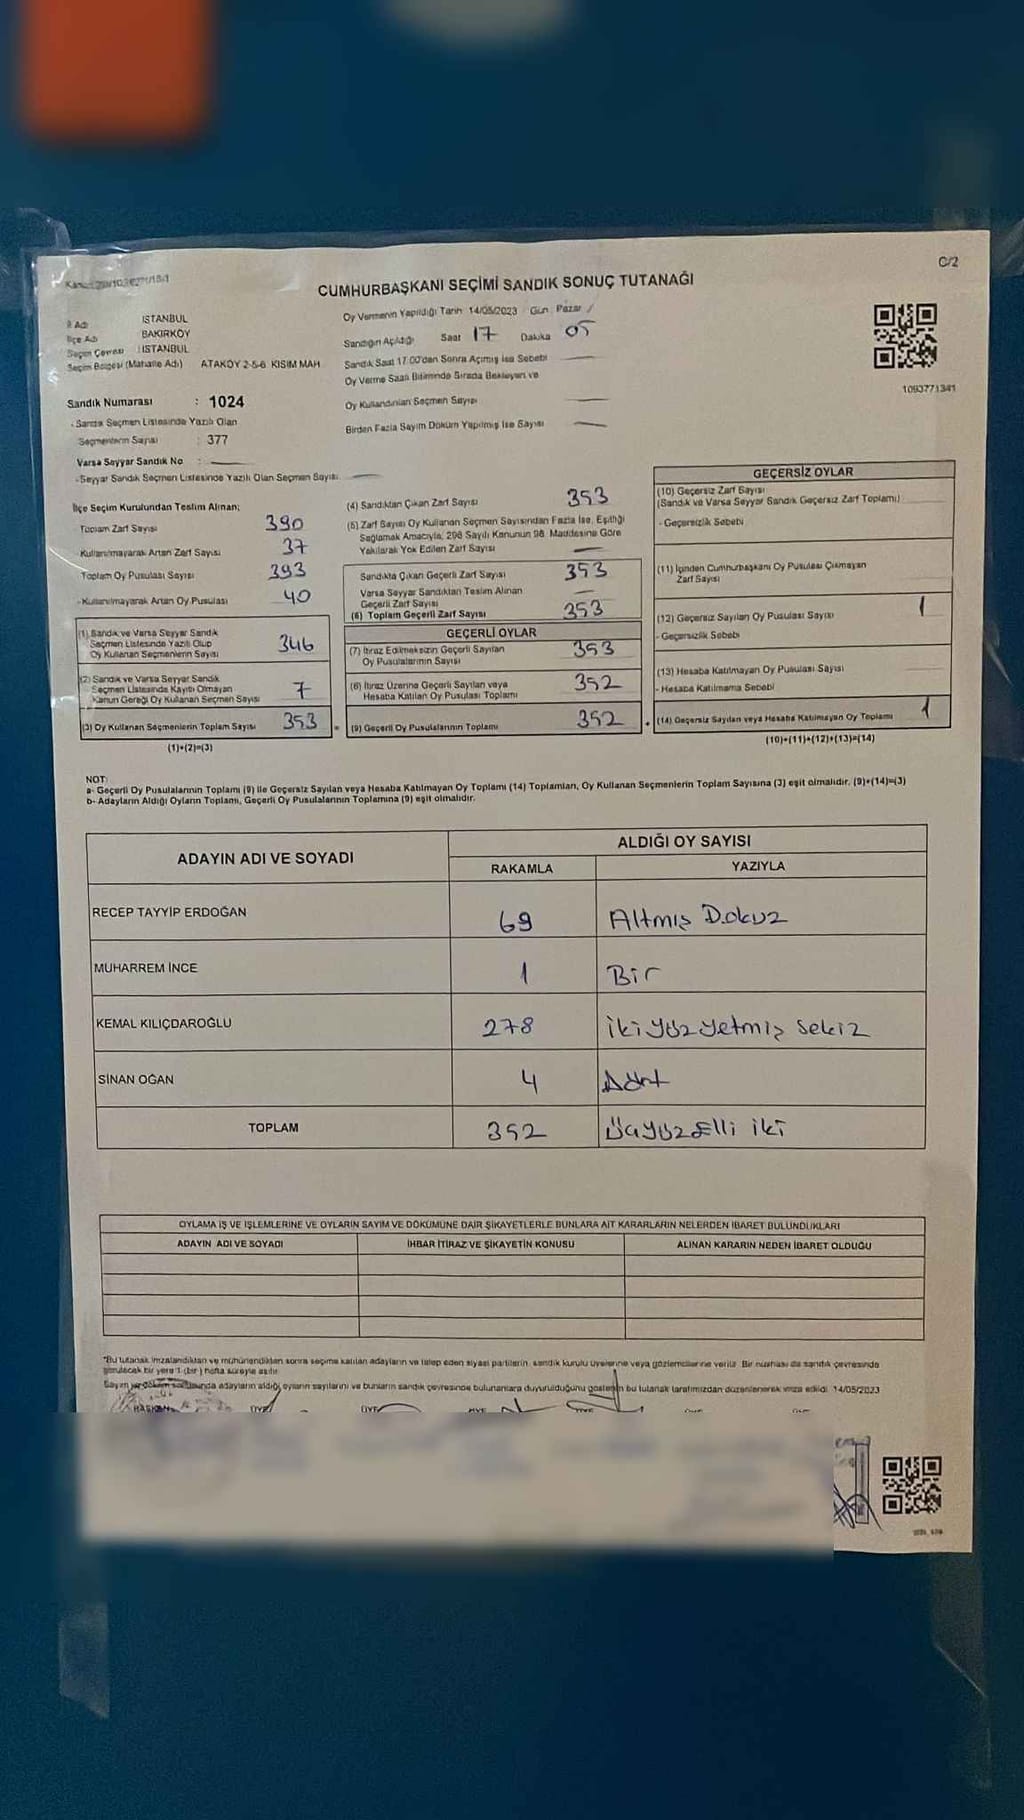 C/2
CUMHURBAŞKANI SEÇİMİ SANDIK SONUÇ TUTANAĞI
İl Adı İSTANBUL
İlçe Adı BAKIRKÖY
Seçim Çevresi : İSTANBUL
Seçim Bölgesi (Mahalle Adı) ATAKÖY 2-5-6 KISIM MAH
Sandık Numarası : 1024
- Sandık Seçmen Listesinde Yazılı Olan
Seçmenlerin Sayısı : 377
Varsa Seyyar Sandık No :
- Seyyar Sandık Seçmen Listesinde Yazılı Olan Seçmen Sayısı
Oy Vermenin Yapıldığı Tarih 14/05/2023 Gün Pazar /
Sandığın Açıldığı Saat 17 Dakika 05
Sandık Saat 17.00'den Sonra Açımış İse Sebebi
Oy Verme Saati Bitiminde Sırada Bekleyen ve
Oy Kullandırılan Seçmen Sayısı
Birden Fazla Sayım Döküm Yapılmış İse Sayısı
1093771341
İlçe Seçim Kurulundan Teslim Alınan;
Toplam Zarf Sayısı 390
- Kullanılmayarak Artan Zarf Sayısı 37
Toplam Oy Pusulası Sayısı 393
- Kullanılmayarak Artan Oy Pusulası 40
(1) Sandık ve Varsa Seyyar Sandık
Seçmen Listesinde Yazılı Olup
Oy Kullanan Seçmenlerin Sayısı 346
(2) Sandık ve Varsa Seyyar Sandık
Seçmen Listesinde Kayıtlı Olmayan
Kanun Gereği Oy Kullanan Seçmen Sayısı 7
(3) Oy Kullanan Seçmenlerin Toplam Sayısı 353 =
(1)+(2)=(3)
(4) Sandıktan Çıkan Zarf Sayısı 353
(5) Zarf Sayısı Oy Kullanan Seçmen Sayısından Fazla İse, Eşitliği
Sağlamak Amacıyla, 298 Sayılı Kanunun 98. Maddesine Göre
Yakılarak Yok Edilen Zarf Sayısı
Sandıkta Çıkan Geçerli Zarf Sayısı 353
Varsa Seyyar Sandıktan Teslim Alınan
Geçerli Zarf Sayısı
(6) Toplam Geçerli Zarf Sayısı 353
GEÇERLİ OYLAR
(7) İtiraz Edilmeksizin Geçerli Sayılan
Oy Pusulalarının Sayısı 353
(8) İtiraz Üzerine Geçerli Sayılan veya
Hesaba Katılan Oy Pusulası Toplamı 352
(9) Geçerli Oy Pusulalarının Toplamı 352 +
GEÇERSİZ OYLAR
(10) Geçersiz Zarf Sayısı
(Sandık ve Varsa Seyyar Sandık Geçersiz Zarf Toplamı)
- Geçersizlik Sebebi
(11) İçinden Cumhurbaşkanı Oy Pusulası Çıkmayan
Zarf Sayısı
(12) Geçersiz Sayılan Oy Pusulası Sayısı 1
- Geçersizlik Sebebi
(13) Hesaba Katılmayan Oy Pusulası Sayısı
- Hesaba Katılmama Sebebi
(14) Geçersiz Sayılan veya Hesaba Katılmayan Oy Toplamı 1
(10)+(11)+(12)+(13)=(14)
NOT:
a- Geçerli Oy Pusulalarının Toplamı (9) ile Geçersiz Sayılan veya Hesaba Katılmayan Oy Toplamı (14) Toplamları, Oy Kullanan Seçmenlerin Toplam Sayısına (3) eşit olmalıdır. (9)+(14)=(3)
b- Adayların Aldığı Oyların Toplamı, Geçerli Oy Pusulalarının Toplamına (9) eşit olmalıdır.
ADAYIN ADI VE SOYADI ALDIĞI OY SAYISI
RAKAMLA YAZIYLA
RECEP TAYYİP ERDOĞAN 69 Altmış Dokuz
MUHARREM İNCE 1 Bir
KEMAL KILIÇDAROĞLU 278 iki yüz yetmiş sekiz
SİNAN OĞAN 4 Dört
TOPLAM 352 üçyüz Elli iki
OYLAMA İŞ VE İŞLEMLERİNE VE OYLARIN SAYIM VE DÖKÜMÜNE DAİR ŞİKAYETLERLE BUNLARA AİT KARARLARIN NELERDEN İBARET BULUNDUKLARI
ADAYIN ADI VE SOYADI İHBAR İTİRAZ VE ŞİKAYETİN KONUSU ALINAN KARARIN NEDEN İBARET OLDUĞU
*Bu tutanak imzalandıktan ve mühürlendikten sonra seçime katılan adayların ve talep eden siyasi partilerin, sandık kurulu üyelerine veya gözlemcilerine verilir. Bir nüshası da sandık çevresinde
görülecek bir yere 1 (bir) hafta süreyle asılır.
Sayım ve döküm sonucunda adayların aldığı oyların sayılarını ve bunların sandık çevresinde bulunanlara duyurulduğunu gösteren bu tutanak tarafımızdan düzenlenerek imza edildi. 14/05/2023
BAŞKAN ÜYE ÜYE ÜYE ÜYE